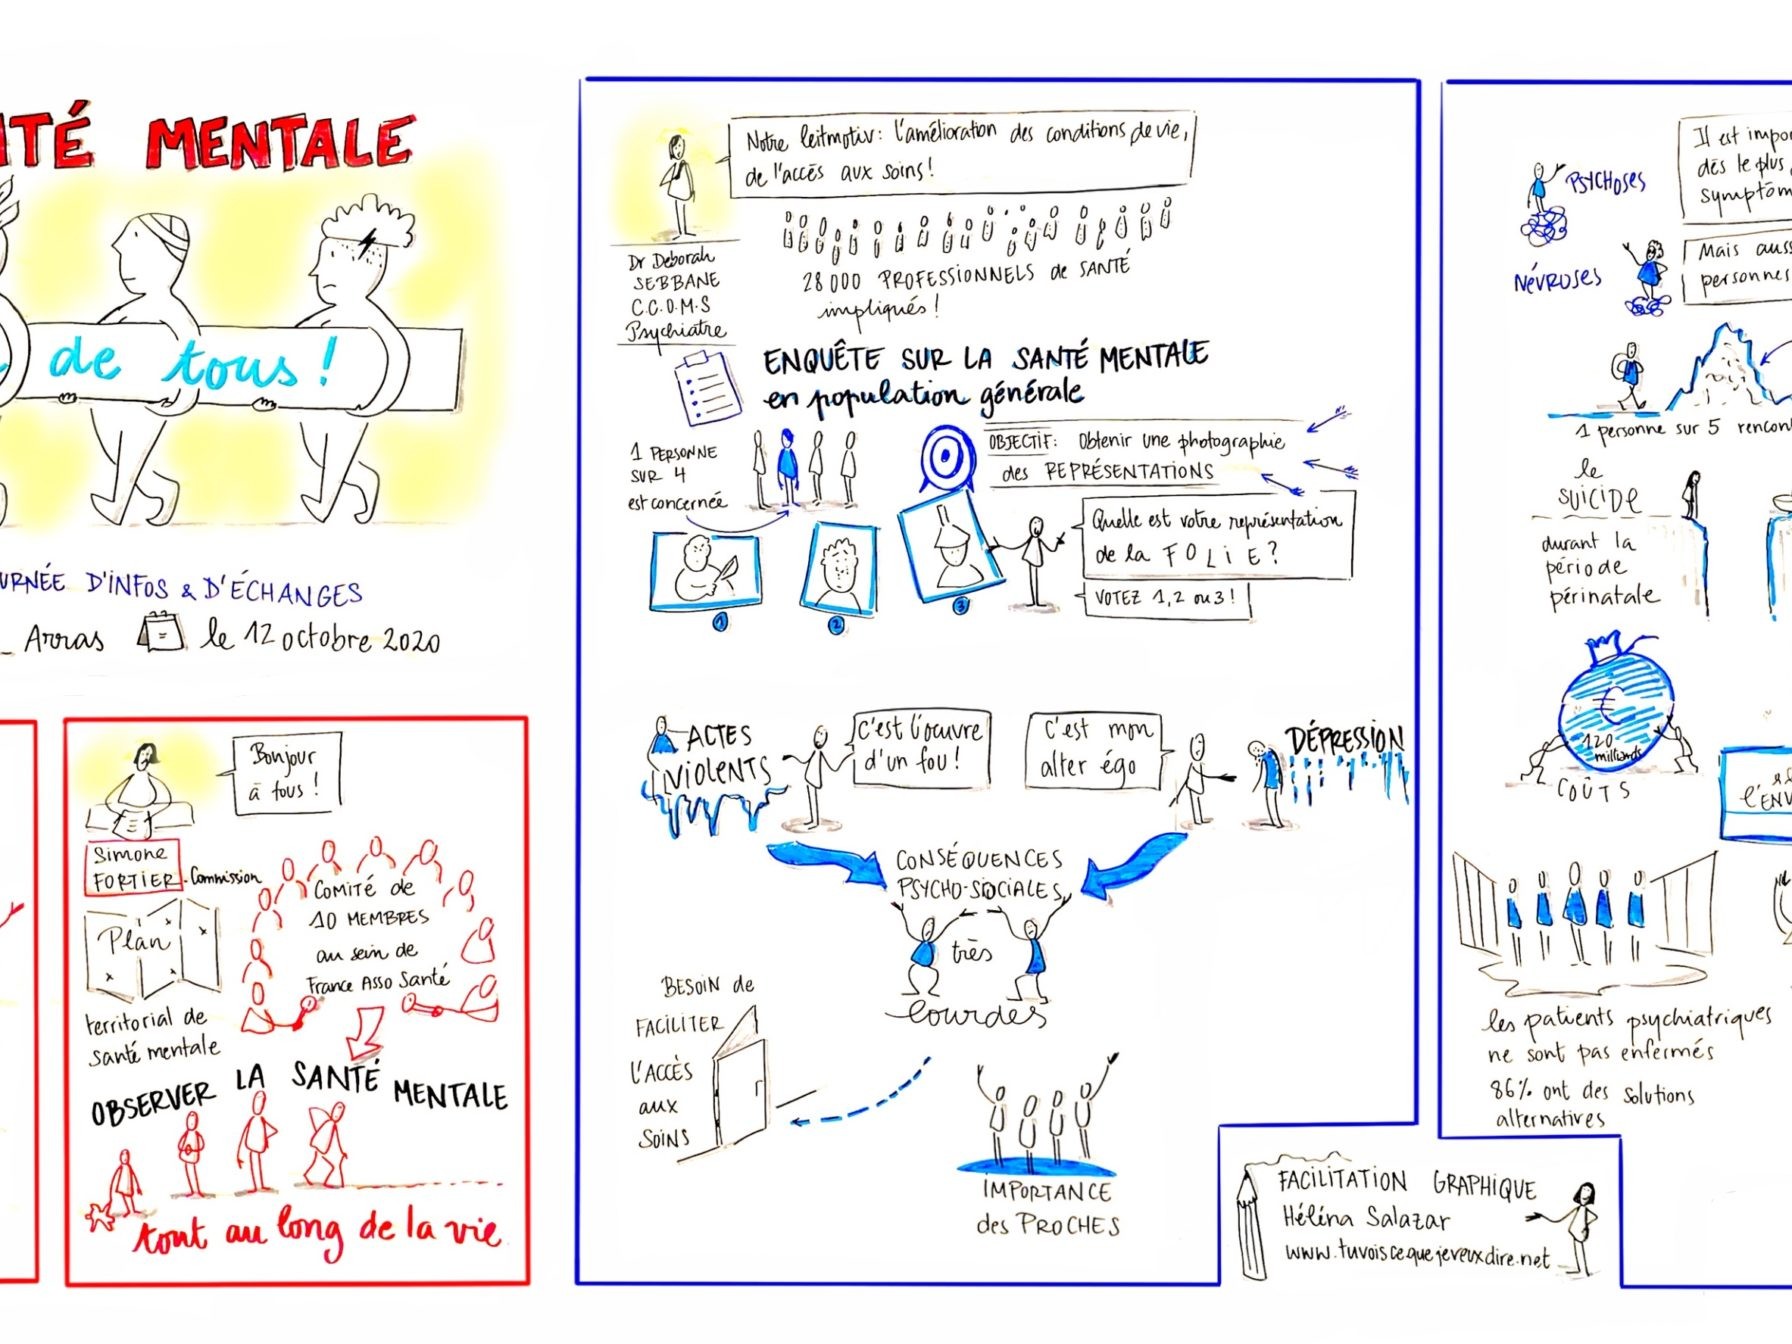 MENTALE
de tous !
D'INFOS & D'ÉCHANGES
Arras le 12 octobre 2020
Bonjour
à tous !
Simone
FORTIER. Commission
Plan
territorial de
santé mentale
COMITÉ de
10 MEMBRES
au sein de
France Asso Santé
OBSERVER LA SANTÉ MENTALE
tout au long de la vie
Notre leitmotiv : l'amélioration des conditions de vie,
de l'accès aux soins !
Dr Deborah
SEBBANE
C.C.O.M.S
Psychiatre
28 000 PROFESSIONNELS de SANTÉ
impliqués !
ENQUÊTE SUR LA SANTÉ MENTALE
en population générale
1 PERSONNE
SUR 4
est concernée
OBJECTIF : Obtenir une photographie
des REPRÉSENTATIONS
Quelle est votre représentation
de la FOLiE ?
VOTEZ 1, 2 ou 3 !
1
2
3
ACTES
ViOLENTS
C'est l'oeuvre
d'un fou !
C'est mon
alter égo
DÉPRESSION
CONSÉQUENCES
PSYCHO-SOCIALES
très
lourdes
BESOIN de
FACILITER
L'ACCÈS
aux
SOINS
IMPORTANCE
des PROCHES
PSYCHOSES
Il est
dès le plus
NÉVROSES
Mais
personnes
1 personne sur 5
le
SUICIDE
durant la
période
périnatale
€
120
milliards
COÛTS
les patients psychiatriques
ne sont pas enfermés
86% ont des solutions
alternatives
FACILITATION GRAPHIQUE
Héléna Salazar
www.tuvoiscequejeveuxdire.net